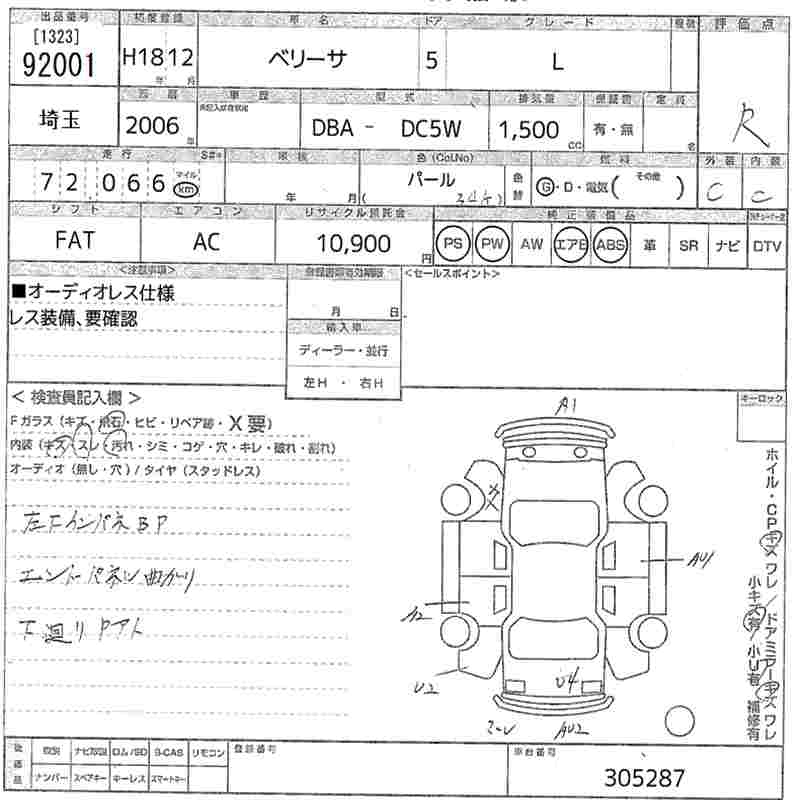 出品番号 初度登録 車名 ドア グレード 評価点
[1323]
92001 H18 12 ベリーサ 5 L
年 月
R
西暦 車歴 型式 排気量 保証書 定員
埼玉 2006 年 DBA - DC5W 1,500 cc 有・無 名
走行 車検 色(Col.No) 燃料 外装 内装
72,066 マイル km 年 月 パール ( ) 色替 G・D・電気( その他 ) C C
シフト エアコン リサイクル預託金 純正装備品
FAT AC 10,900 円 PS PW AW エアB ABS 革 SR ナビ DTV
<注意事項> <セールスポイント>
■オーディオレス仕様
レス装備、要確認
月 日
輸入車
ディーラー・並行
左H ・ 右H
< 検査員記入欄 > キーロック
Fガラス (キズ・飛石・ヒビ・リペア跡・X要)
内装 (キズ・スレ・汚れ・シミ・コゲ・穴・キレ・破れ・割れ)
オーディオ (無し・穴) / タイヤ (スタッドレス)
左Fインパネ BP
エンドパネル曲がり
下廻りPアト
A1
X
AU1
A2
U2
U4
AU2
ホイル・CPキズ ワレ / ドアミラーキズ ワレ
小キズ有 / 小U有 補修有
後価品 取説 ナビ取説 ロム/SD B-CAS リモコン 登録番号 車台番号
ナンバー スペアキー キーレス スマートキー
305287